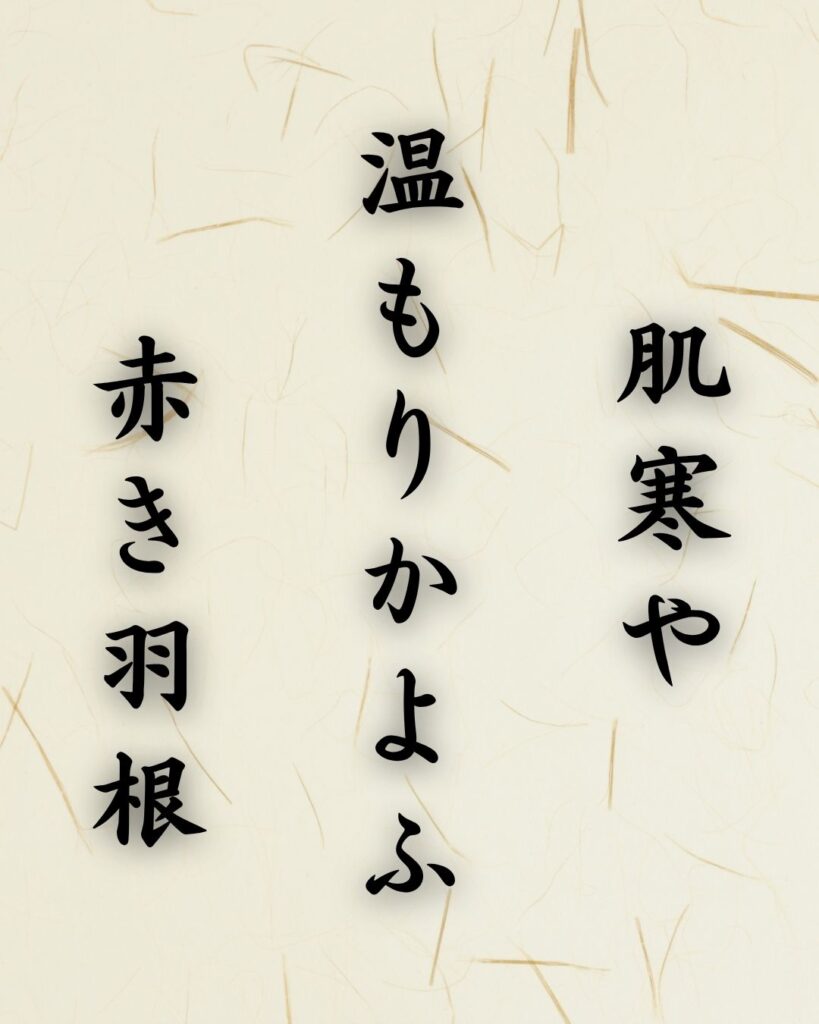 肌寒や
温もりかよふ
赤き羽根